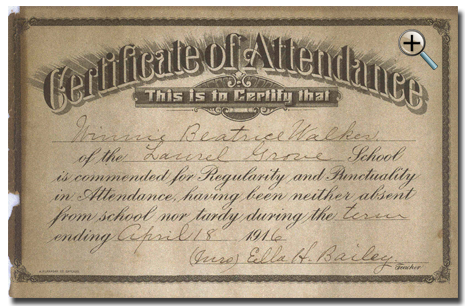 Certificate of Attendance
This is to Certify that
Winnie Beatrice Walker
of the Laurel Grove School
is commended for Regularity and Punctuality
in Attendance, having been neither absent
from school nor tardy during the term
ending April 18 1916
(Mrs) Ella H. Bailey.
Teacher